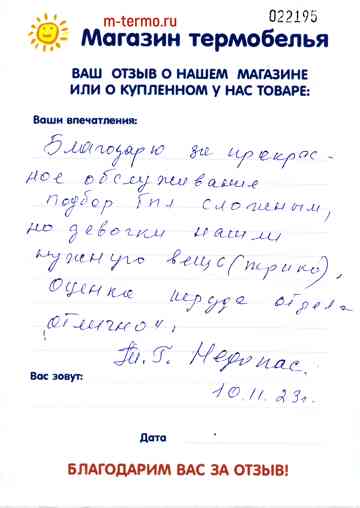 m-termo.ru
022195
Магазин термобелья
ВАШ ОТЗЫВ О НАШЕМ МАГАЗИНЕ
ИЛИ О КУПЛЕННОМ У НАС ТОВАРЕ:
Ваши впечатления:
Благодарю за прекрас-
ное обслуживание
подбор был сложным,
но девочки нашли
нужную вещь (трико),
Оценка труда отдела
"отлично".
Т. Г. Недопас.
Вас зовут:
10.11.23г.
Дата
БЛАГОДАРИМ ВАС ЗА ОТЗЫВ!